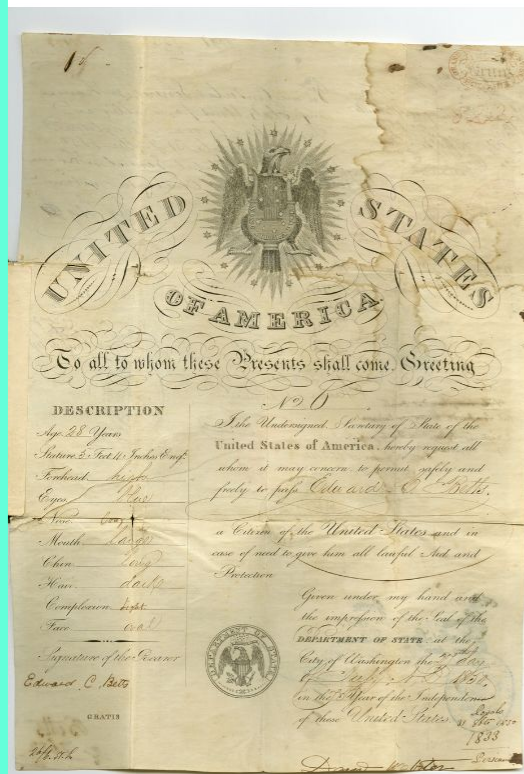 UNITED STATES
OF AMERICA
To all to whom these Presents shall come, Greeting
No 6
DESCRIPTION
Age, 28 Years
Stature, 5 Feet Inches Eng.
Forehead, high
Eyes,
Nose, long
Mouth large
Chin long
Hair, dark
Complexion, light
Face oval
Signature of the Bearer
Edward C. Betts
GRATIS
I the Undersigned Secretary of State of the
United States of America, hereby request all
whom it may concern to permit safely and
freely to pass Edward C. Betts,
a Citizen of the United States and in
case of need to give him all lawful Aid and
Protection
Given under my hand and
the impression of the Seal of the
DEPARTMENT OF STATE at the
City of Washington the day
of A.D. 1850,
in the Year of the Independence
of these United States
DEPARTMENT OF STATE